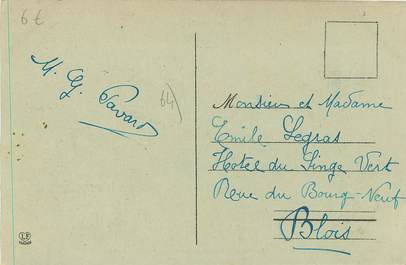 6 €
M. G. Savard
64
Monsieur et Madame
Emile Legras
Hôtel du Singe Vert
Rue du Bourg-Neuf
Blois
LP